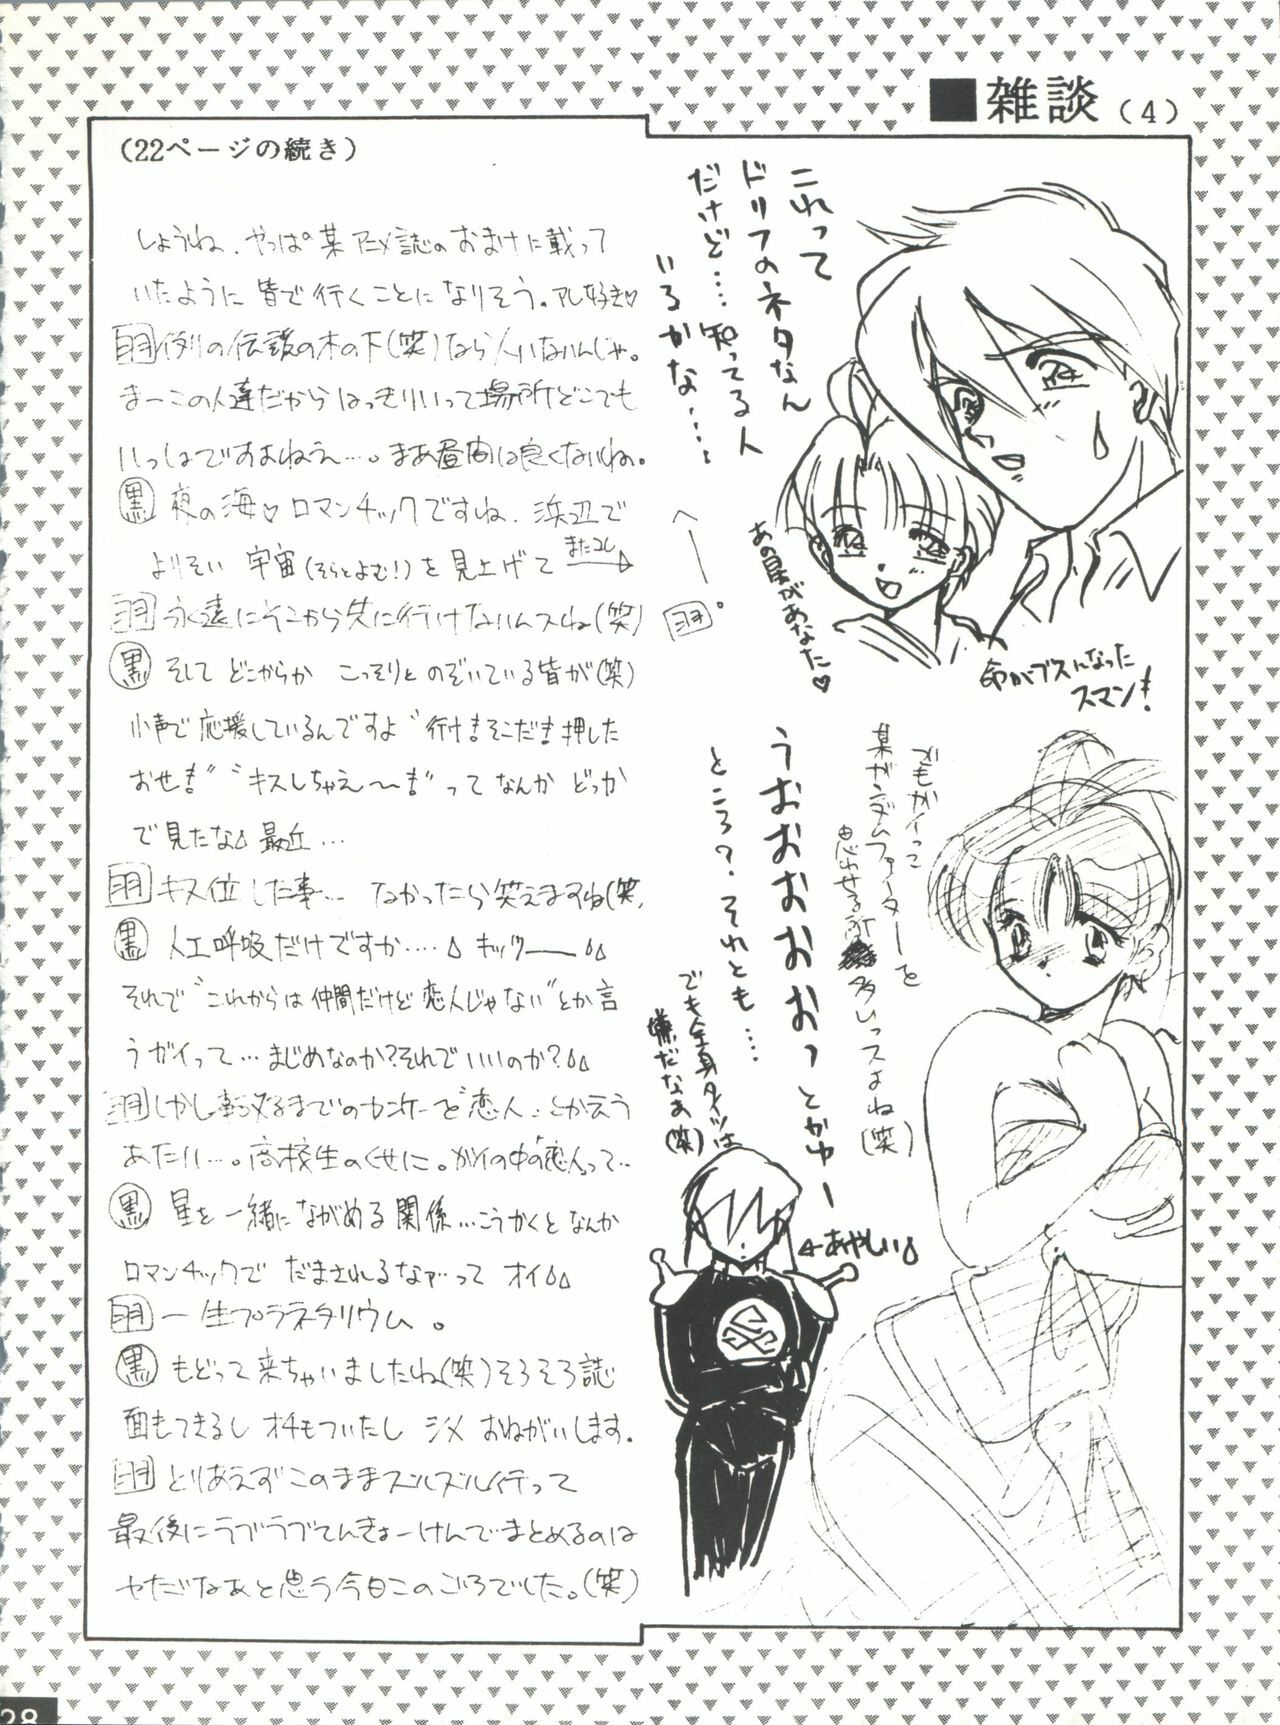 ■雑談(4)
(22ページの続き)
しょうね、やっぱ某アニメ誌のおまけに載って
いたように皆で行くことになりそう。アレ好き♡
羽 例の伝説の木の下(笑)ならいいんじゃ。
まーこの人達だからはっきりいって場所どこでも
いっしょですよねえ…。まあ昼間は良くないね。
黒 夜の海♡ロマンチックですね、浜辺で
よりそい 宇宙(そらとよむ!)を見上げて またコレ
羽 永遠にそこから先に行けないんスね(笑)
黒 そして どこからか こっそりと のぞいている皆が(笑)
小声で応援しているんですよ“行け!そこだ!押した
おせ!”“キスしちゃえ〜!”って なんか どっか
で見たな 最近…
羽 キス位した事… なかったら笑えますね(笑)
黒 人工呼吸だけですか…. キッツー
それで“これからは仲間だけど恋人じゃない”とか言
うガイって…まじめなのか?それでいいのか?
羽 しかし転校するまでのカンケーを“恋人”とか云う
あたり…。高校生のくせに。ガイの中の“恋人”って…
黒 星を一緒にながめる関係…こうかくと なんか
ロマンチックで だまされるなァ…って オイ
羽 一生プラネタリウム。
黒 もどって来ちゃいましたね(笑)そろそろ誌
面もつきるし オチもついたし シメ おねがいします。
羽 とりあえずこのままズルズルイテって
最後にラブラブてんきょーけんでまとめるのは
ヤだなあと思う今日このごろでした。(笑)
これって
ドリフのネタなん
だけど…知ってる人
いるかな……
へ
羽
あの星があなた♡
命がブスんなった
スマン!
でもガイって
某ガンダムファイターを
思わせる所
多いっスよね(笑)
うおおおおおっとかゆー
ところ?それとも…
でも全身タイツは
嫌だなぁ(笑)
←あやしい
28